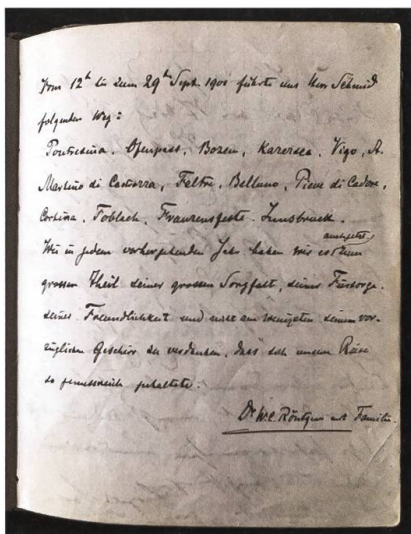 Vom 12t bis zum 29t Sept. 1900 führte uns Herr Schmid
folgenden Weg:
Pontresina, Ofenpass, Bozen, Karersee, Vigo, S.
Martino di Castrozza, Feltre, Belluno, Pieve di Cadore,
Cortina, Toblach, Franzensfeste, Innsbruck.
Wie in jedem vorhergehenden Jahr haben wir es zum
grossen Theil seiner grossen Sorgfalt, seiner Fürsorge,
seiner Freundlichkeit und nicht am wenigsten seinem vor-
züglichen Geschirr zu verdanken, dass sich unsere Reise
so genussreich gestaltete.
Dr W.C. Röntgen mit Familie.